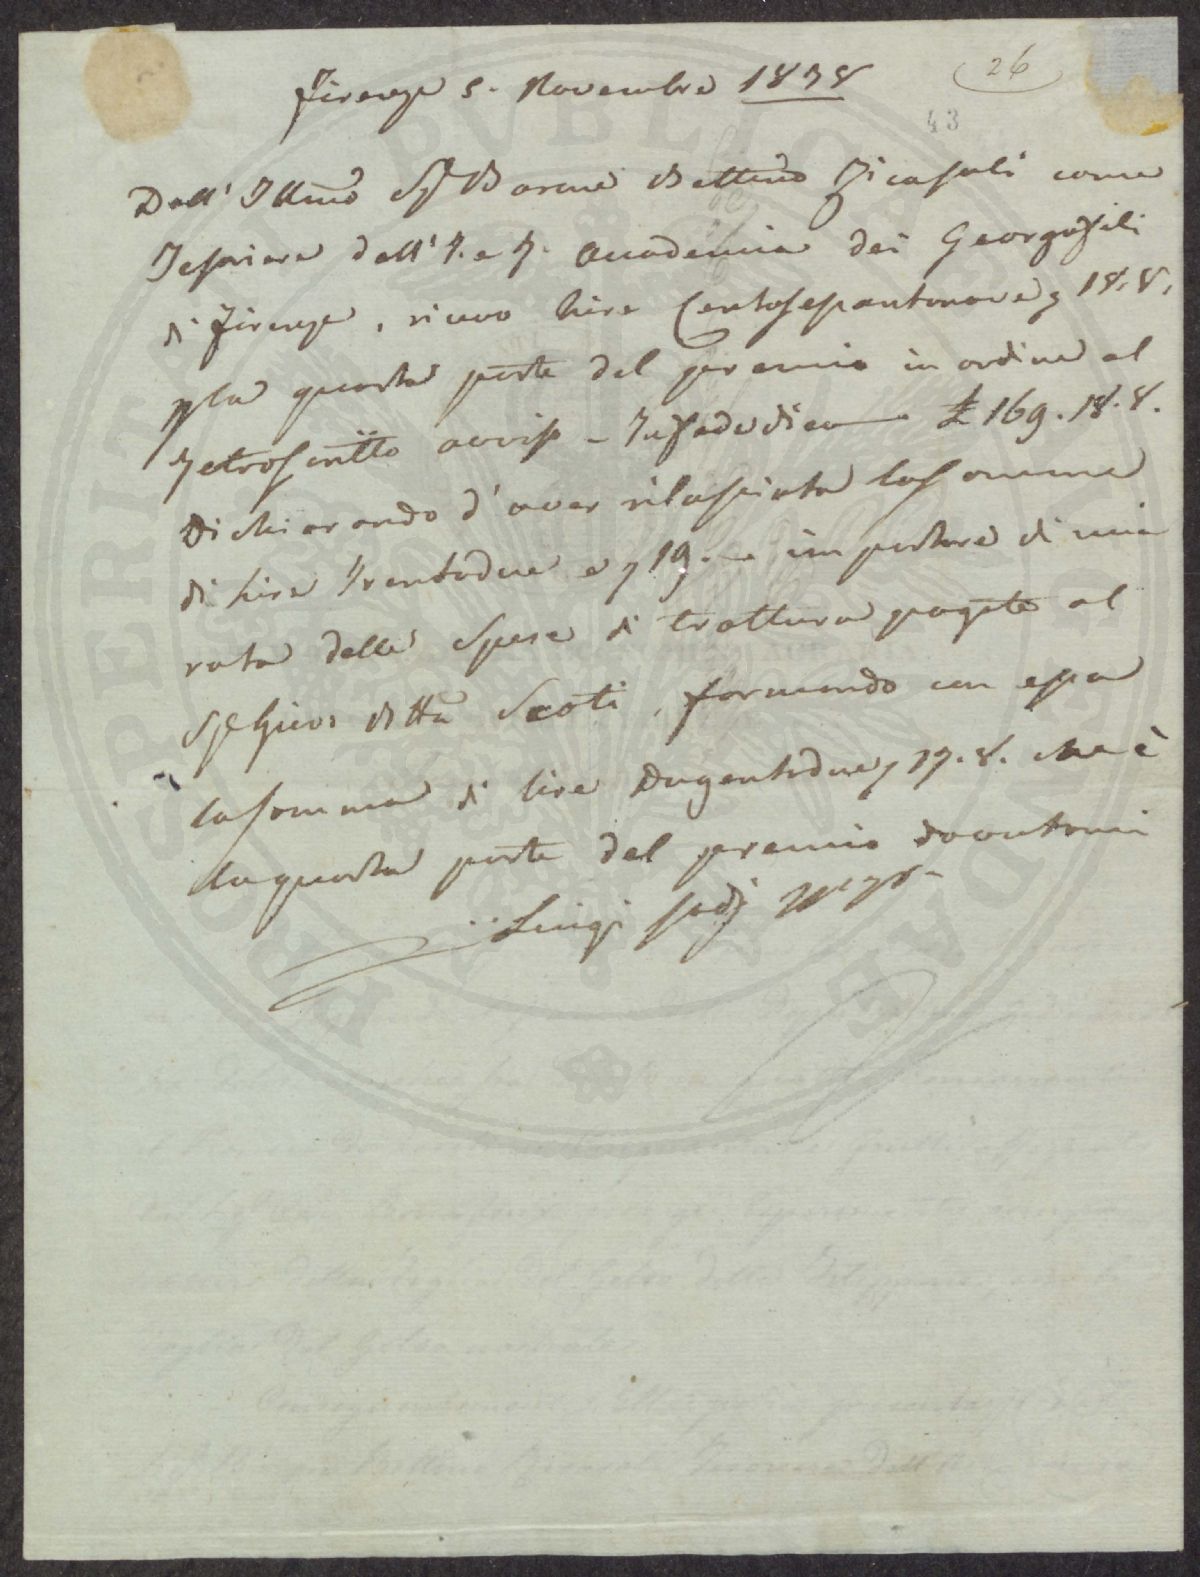 26
43
Firenze 5. Novembre 1838
Dall' Illmo Sigr Barone Bettino Ricasoli come
Tesoriere dell' I. e R. Accademia dei Georgofili
di Firenze, ricevo Lire Centosessantanove, 18. 8.
p la quarta parte del premio in ordine al
retroscritto avviso – £ 169. 18. 8.
Dichiarando d' aver rilasciata la somma
di Lire trentadue e, 19. – importare di mia
rata delle Spese di trattura pagate al
Scoti, formando con essa
la somma di lire Dugentodue, 17. 8. che è
la quarta parte del premio
Luigi